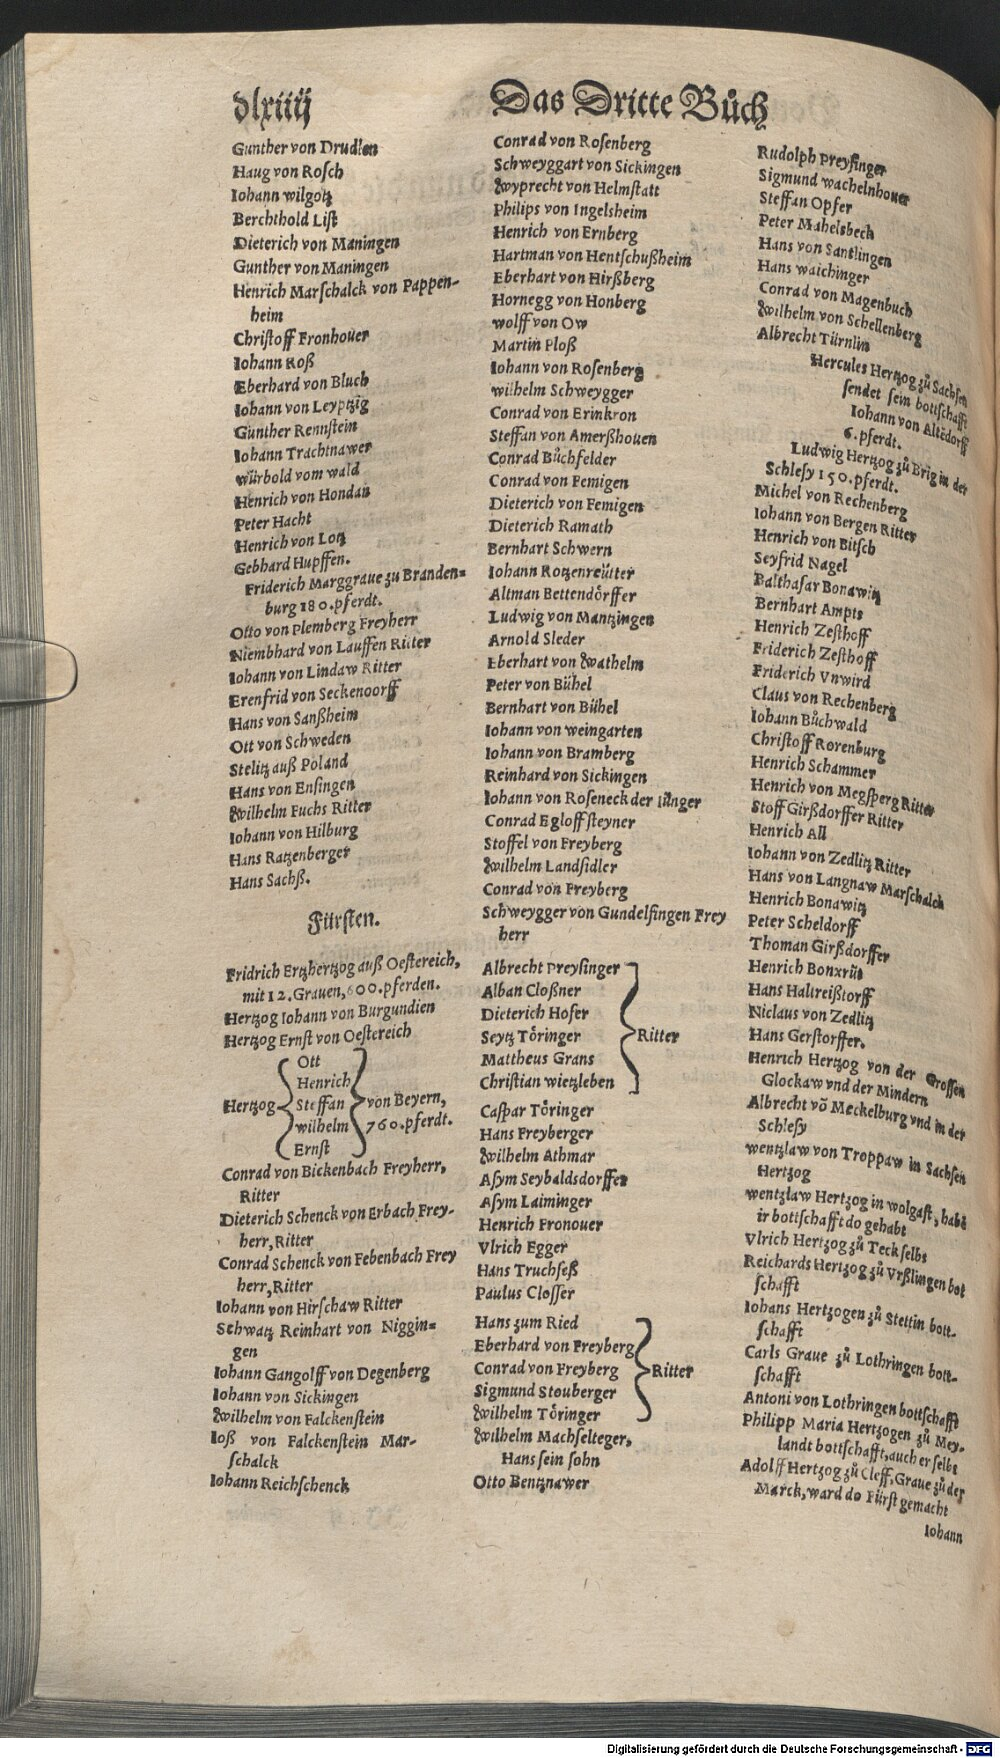 dlxiiij
Das Dritte Bůch
Gunther von Drudlen
Haug von Rosch
Iohann wilgotz
Berchthold List
Dieterich von Maningen
Gunther von Maningen
Henrich Marschalck von Pappen-
heim
Christoff Fronhouer
Iohann Roß
Eberhard von Bluch
Iohann von Leyptzig
Gunther Rennstein
Iohann Trachtnawer
würbold vom wald
Henrich von Hondan
Peter Hacht
Henrich von Lotz
Gebhard Hupffen.
Friderich Marggraue zu Branden=
burg 180. pferdt.
Otto von Plemberg Freyherr
Niembhard von Lauffen Ritter
Iohann von Lindaw Ritter
Erenfrid von Seckenoorff
Hans von Sanßheim
Ott von Schweden
Stelitz auß Poland
Hans von Ensingen
Wilhelm Fuchs Ritter
Iohann von Hilburg
Hans Ratzenberger
Hans Sachß.
Fürsten.
Fridrich Ertzhertzog auß Oestereich,
mit 12. Grauen, 600. pferden.
Hertzog Iohann von Burgundien
Hertzog Ernst von Oestereich
Ott
Henrich
Hertzog Steffan von Beyern,
wilhelm 760. pferdt.
Ernst
Conrad von Bickenbach Freyherr,
Ritter
Dieterich Schenck von Erbach Frey-
herr, Ritter
Conrad Schenck von Febenbach Frey
herr, Ritter
Iohann von Hirschaw Ritter
Schwatz Reinhart von Niggin=
gen
Iohann Gangolff von Degenberg
Iohann von Sickingen
Wilhelm von Falckenstein
Ioß von Falckenstein Mar-
schalck
Iohann Reichschenck
Conrad von Rosenberg
Schweyggart von Sickingen
Wyprecht von Helmstatt
Philips von Ingelsheim
Henrich von Ernberg
Hartman von Hentschußheim
Eberhart von Hirßberg
Hornegg von Honberg
wolff von Ow
Martin Ploß
Iohann von Rosenberg
wilhelm Schweygger
Conrad von Erinkron
Steffan von Amerßhouen
Conrad Bůchfelder
Conrad von Femigen
Dieterich von Femigen
Dieterich Ramath
Bernhart Schwern
Iohann Rotzenreütter
Altman Bettendörffer
Ludwig von Mantzingen
Arnold Sleder
Eberhart von Wathelm
Peter von Bühel
Bernhart von Bühel
Iohann von weingarten
Iohann von Bramberg
Reinhard von Sickingen
Iohann von Roseneck der Iünger
Conrad Egloffsteyner
Stoffel von Freyberg
Wilhelm Landsidler
Conrad von Freyberg
Schweygger von Gundelfingen Frey
herr
Albrecht Preysinger
Alban Cloßner
Dieterich Hofer
Seytz Töringer Ritter
Mattheus Grans
Christian wietzleben
Caspar Töringer
Hans Freyberger
Wilhelm Athmar
Asym Seybaldsdorffer
Asym Laiminger
Henrich Fronouer
Vlrich Egger
Hans Truchseß
Paulus Closser
Hans zum Ried
Eberhard von Freyberg
Conrad von Freyberg Ritter
Sigmund Stouberger
Wilhelm Töringer
Wilhelm Machselteger,
Hans sein sohn
Otto Bentznawer
Rudolph Preysinger
Sigmund wachelnhouer
Steffan Opfer
Peter Mahelsbeck
Hans von Santlingen
Hans waichinger
Conrad von Magenbuch
Wilhelm von Schellenberg
Albrecht Türnlin
Hercules Hertzog zů Sachsen
sendet sein bottschafft
Iohann von Altēdorff
6. pferdt.
Ludwig Hertzog zů Brig in der
Schlesy 150. pferdt.
Michel von Rechenberg
Iohann von Bergen Ritter
Henrich von Bitsch
Seyfrid Nagel
Balthasar Bonawitz
Bernhart Ampts
Henrich Zesthoff
Friderich Zesthoff
Friderich Vnwird
Claus von Rechenberg
Iohann Bůchwald
Christoff Rorenburg
Henrich Schammer
Henrich von Megsperg Ritter
Stoff Girßdorffer Ritter
Henrich All
Iohann von Zedlitz Ritter
Hans von Langnaw Marschalck
Henrich Bonawitz
Peter Scheldorff
Thoman Girßdorffer
Henrich Bonxrüs
Hans Haltreißtorff
Niclaus von Zedlitz
Hans Gerstorffer.
Henrich Hertzog von der Grossen
Glockaw vnd der Mindern
Albrecht vō Meckelburg vnd in der
Schlesy
wentzlaw von Troppaw in Sachsen
Hertzog
wentzlaw Hertzog in wolgast, habē
ir bottschafft do gehabt
Vlrich Hertzog zů Teck selbs
Reichards Hertzog zů Vrßlingen bot
schafft
Iohans Hertzogen zů Stettin bott-
schafft
Carls Graue zů Lothringen bott-
schafft
Antoni von Lothringen bottschafft
Philipp Maria Hertzogen zů Mey-
landt bottschafft, auch er selbs
Adolff Hertzog zů Cleff, Graue zů der
Marck, ward do Fürst gemacht
Iohann
Digitalisierung gefördert durch die Deutsche Forschungsgemeinschaft - DFG